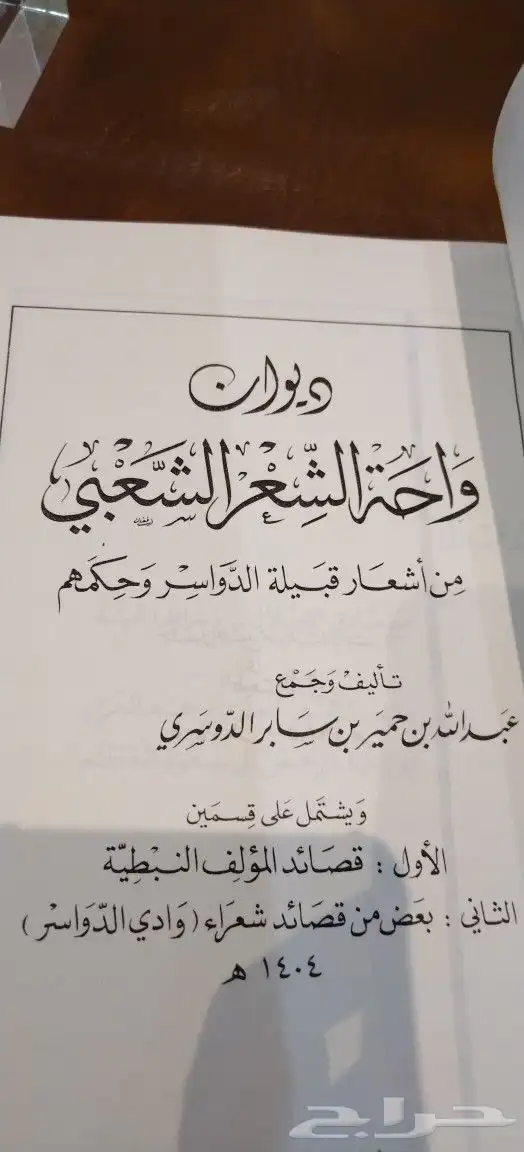 ديوان
وَاحَة الشِّعْر الشَّعْبِي
مِن أشعَار قبَيلة الدَّوَاسِر وَحِكَمَهم
تأليفْ وَجَمْع
عَبدالله بن حميَر بن سَابر الدّوسَري
وَيشتَمل عَلى قِسمَين
الأول : قصَائد المؤلِف النبْطِيّة
الثاني : بعَض من قصَائد شعرَاء ( وَادي الدّوَاسْر )
١٤٠٤ ه
حراج